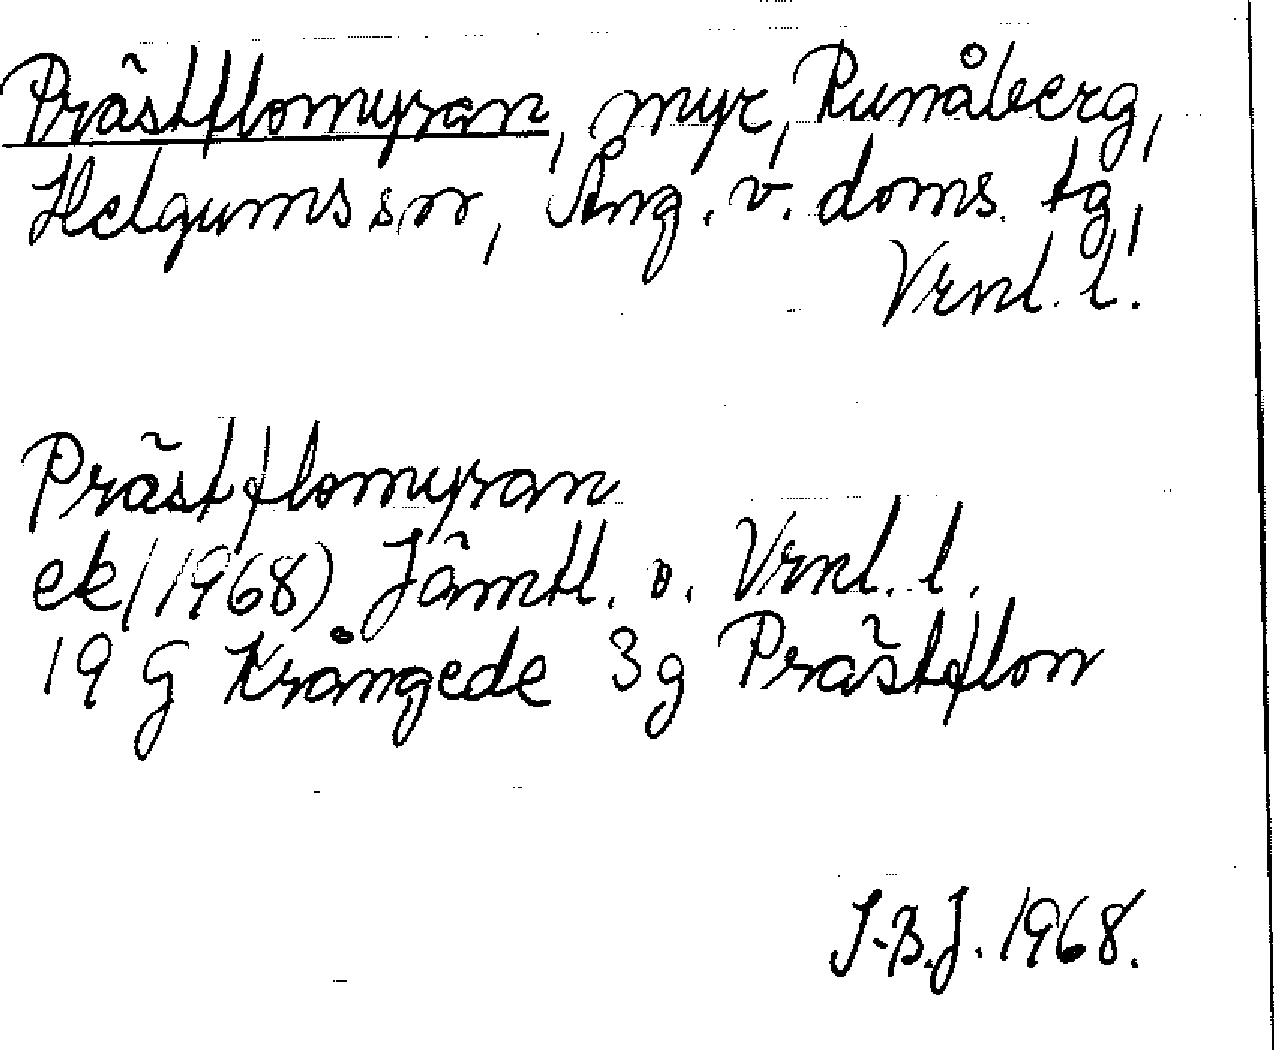 Prästflomyran, myr, Runåberg,
Helgums sn, Ång. v. doms. tg,
Vrnl. l.
Prästflomyran
ek (1968) Jämtl. o. Vrnl. l.
19 G Krångede 3g Prästflon
J-B.J. 1968.